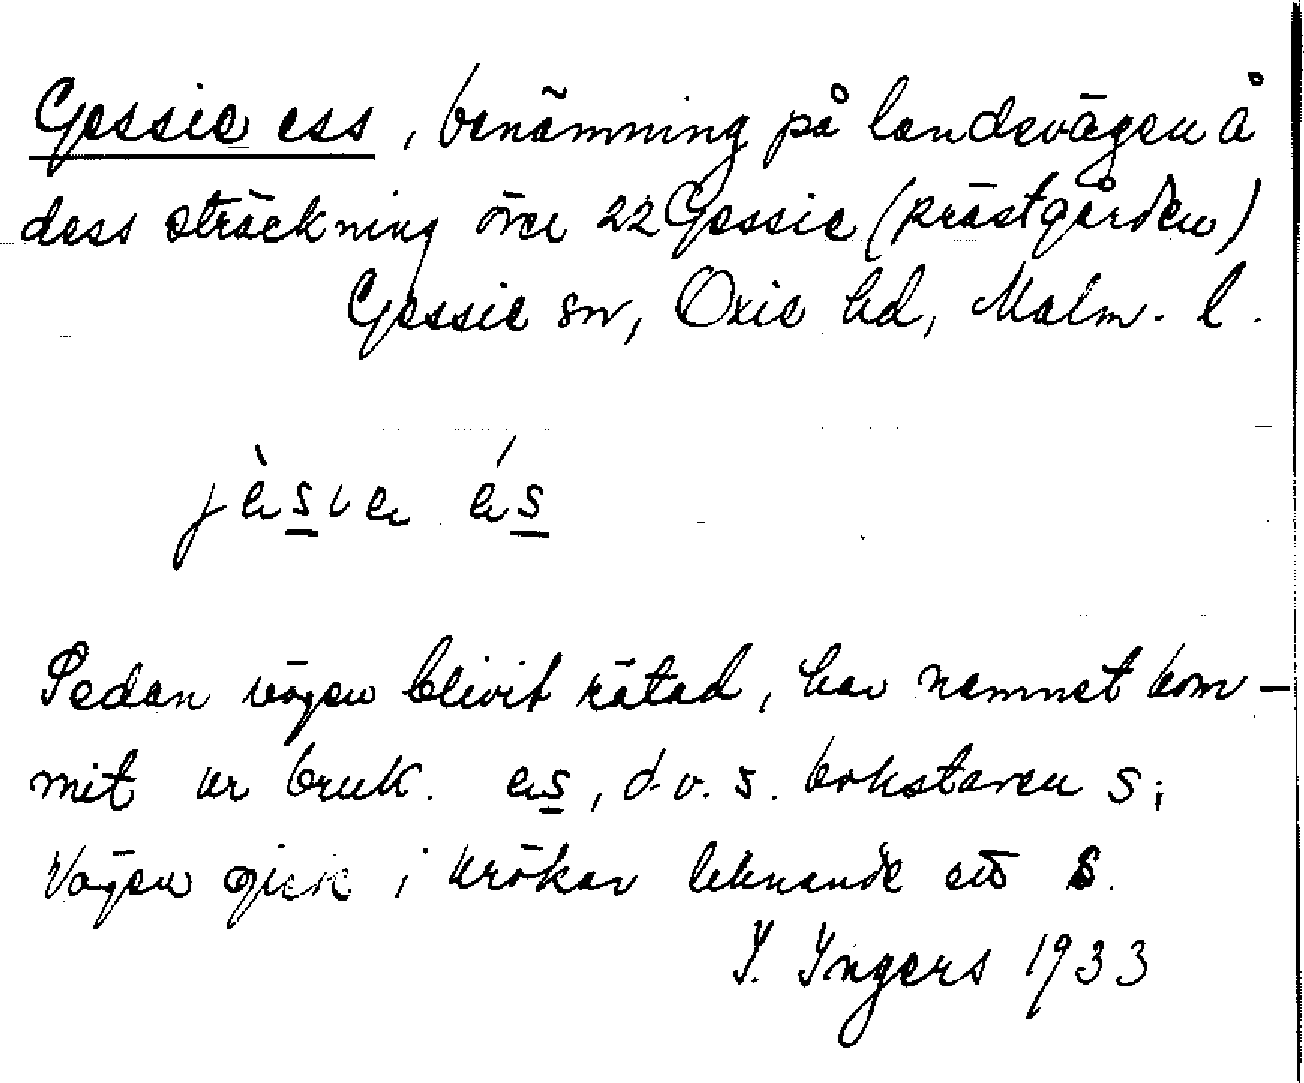 Gessie ess, benämning på landsvägen å
dess sträckning över 22 Gessie (prästgården)
Gessie sn, Oxie hd, Malm. l.
jæ̀siæ ǽs
Sedan vägen blivit rätad, har namnet kom-
mit ur bruk. æs, d.v.s. bokstaven s;
Vägen gick i krökar liknande ett s.
I. Ingers 1933